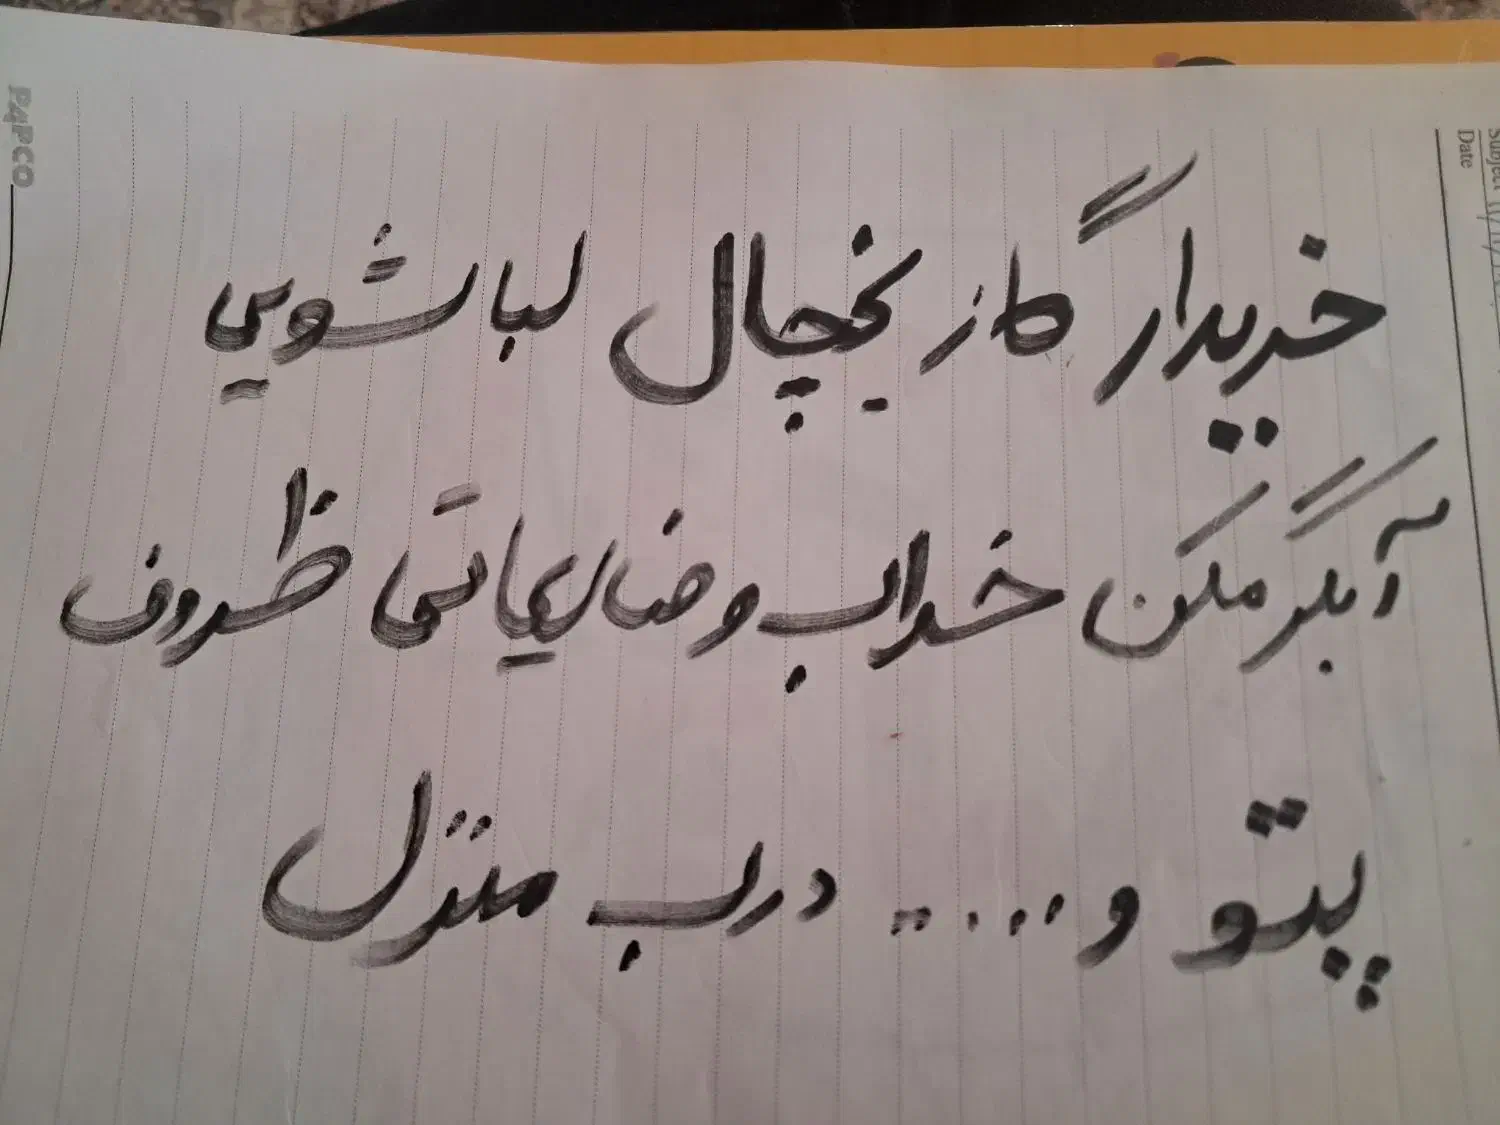 خریدار گاز یخچال لباشویی
آبگرمکن خراب و ضایعاتی ظروف
پتو و ..... درب منزل
PAPCO
Subject
Date